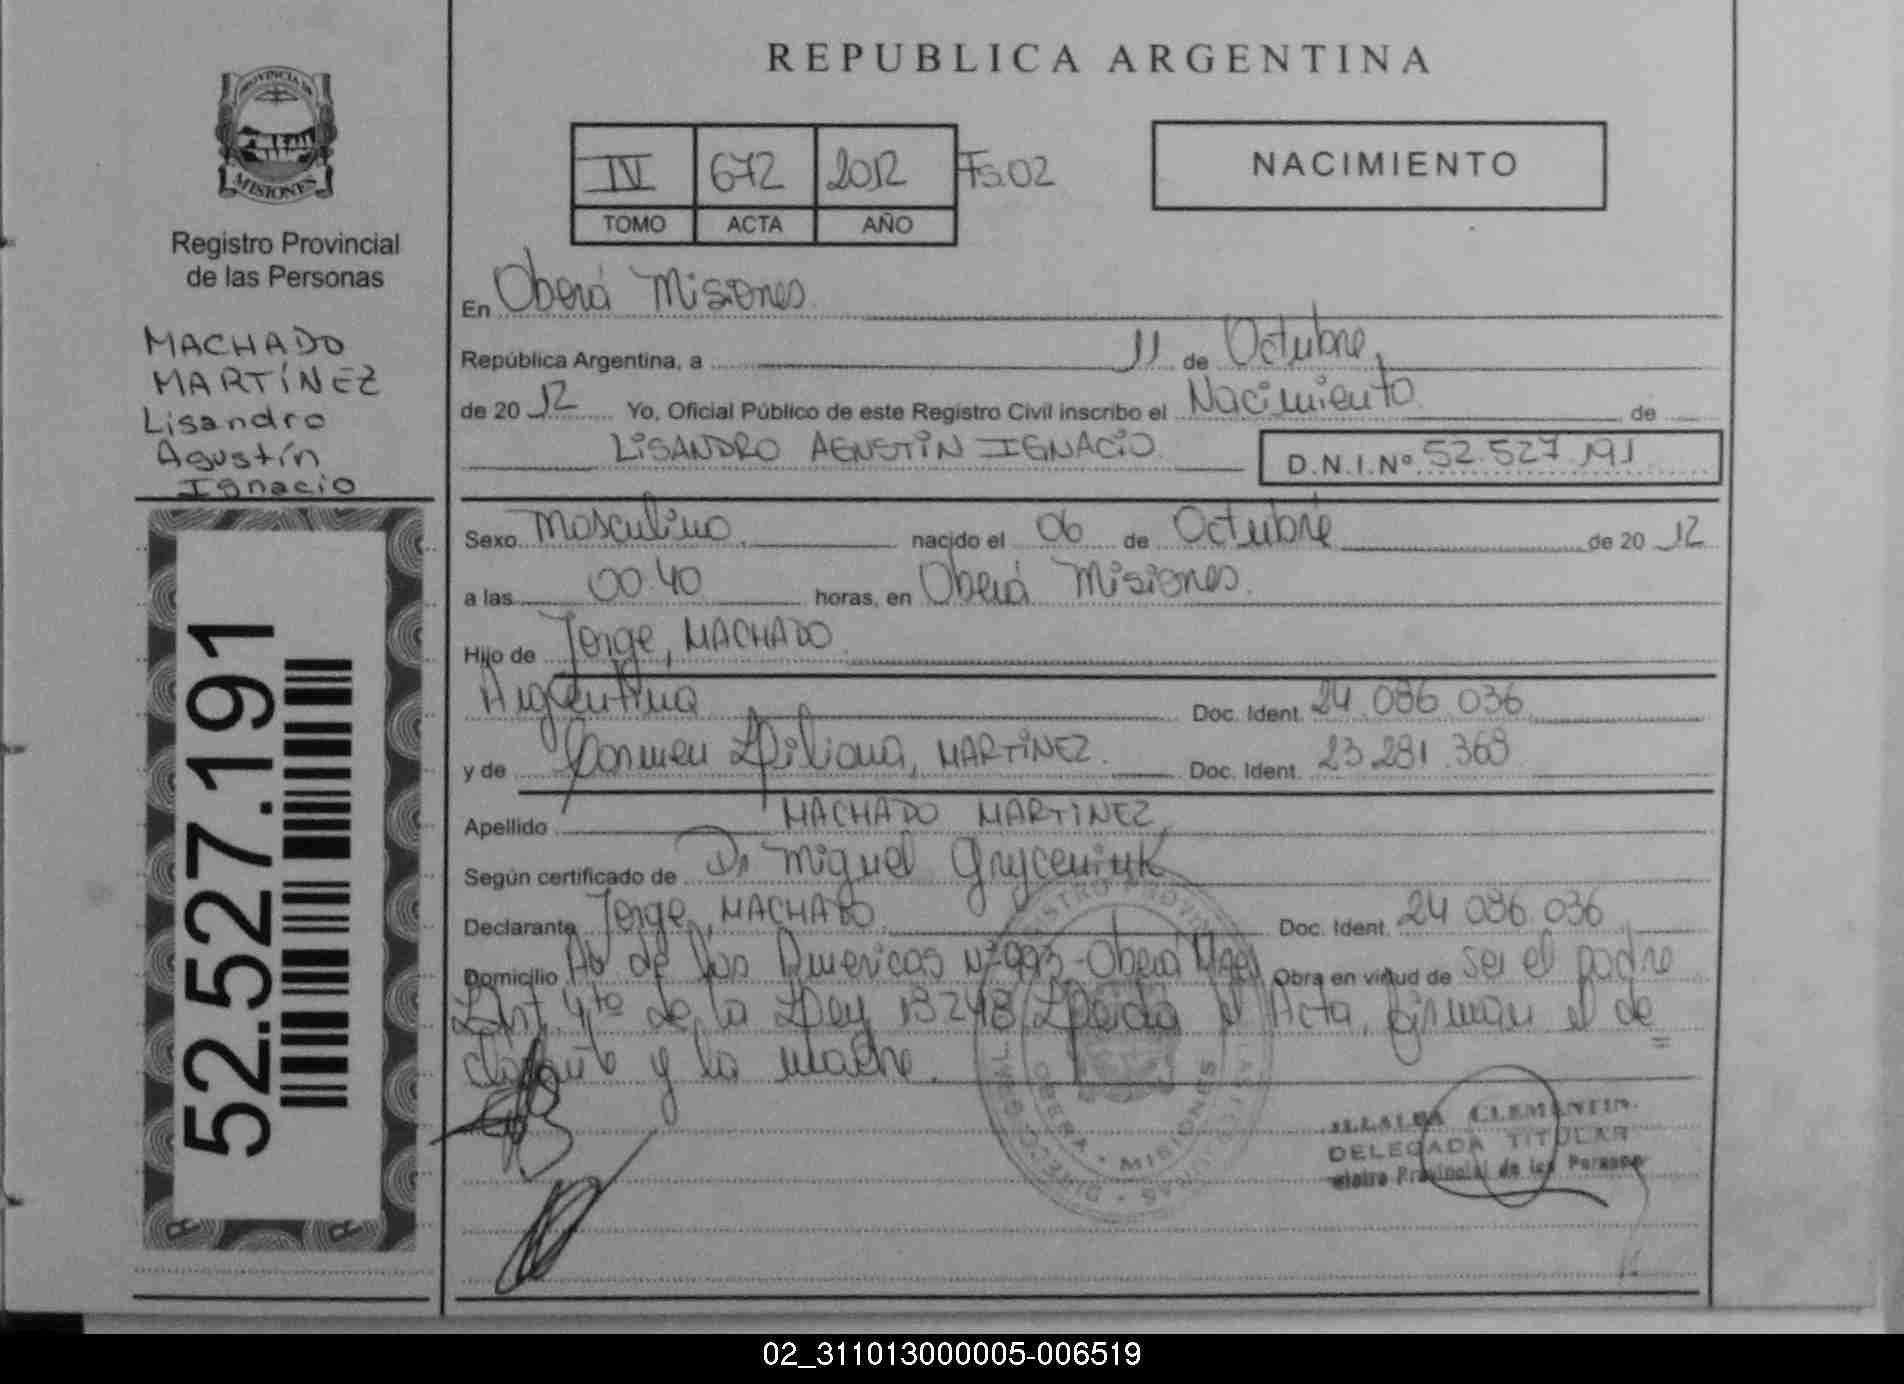 REPUBLICA ARGENTINA
PROVINCIA DE
MISIONES
Registro Provincial
de las Personas
MACHADO
MARTÍNEZ
Lisandro
Agustín
Ignacio
52.527.191
IV 672 2012 Fs.02
TOMO ACTA AÑO
NACIMIENTO
En Oberá Misiones
República Argentina, a 11 de Octubre,
de 20 12 Yo, Oficial Público de este Registro Civil inscribo el Nacimiento de
LISANDRO AGUSTIN IGNACIO D.N.I.Nº 52.527.191
Sexo Masculino, nacido el 06 de Octubre de 20 12
a las 00.40 horas, en Oberá Misiones.
Hijo de Jorge, MACHADO
Argentina Doc. Ident. 24.086.036
y de Carmen Liliana, MARTINEZ. Doc. Ident. 23.281.368
Apellido MACHADO MARTINEZ,
Según certificado de Dr Miguel Gryceniuk
Declarante Jorge, MACHADO Doc. Ident. 24.086.036
Domicilio Av de las Americas Nº993-Oberá Obra en virtud de ser el padre
Art 4to de la Ley 18248 Leida el Acta, firman el de
clarante y la madre.
OBERA · MISIONES
CLEMENTIN
DELEGADA TITULAR
Provincial de las Personas
02_311013000005-006519